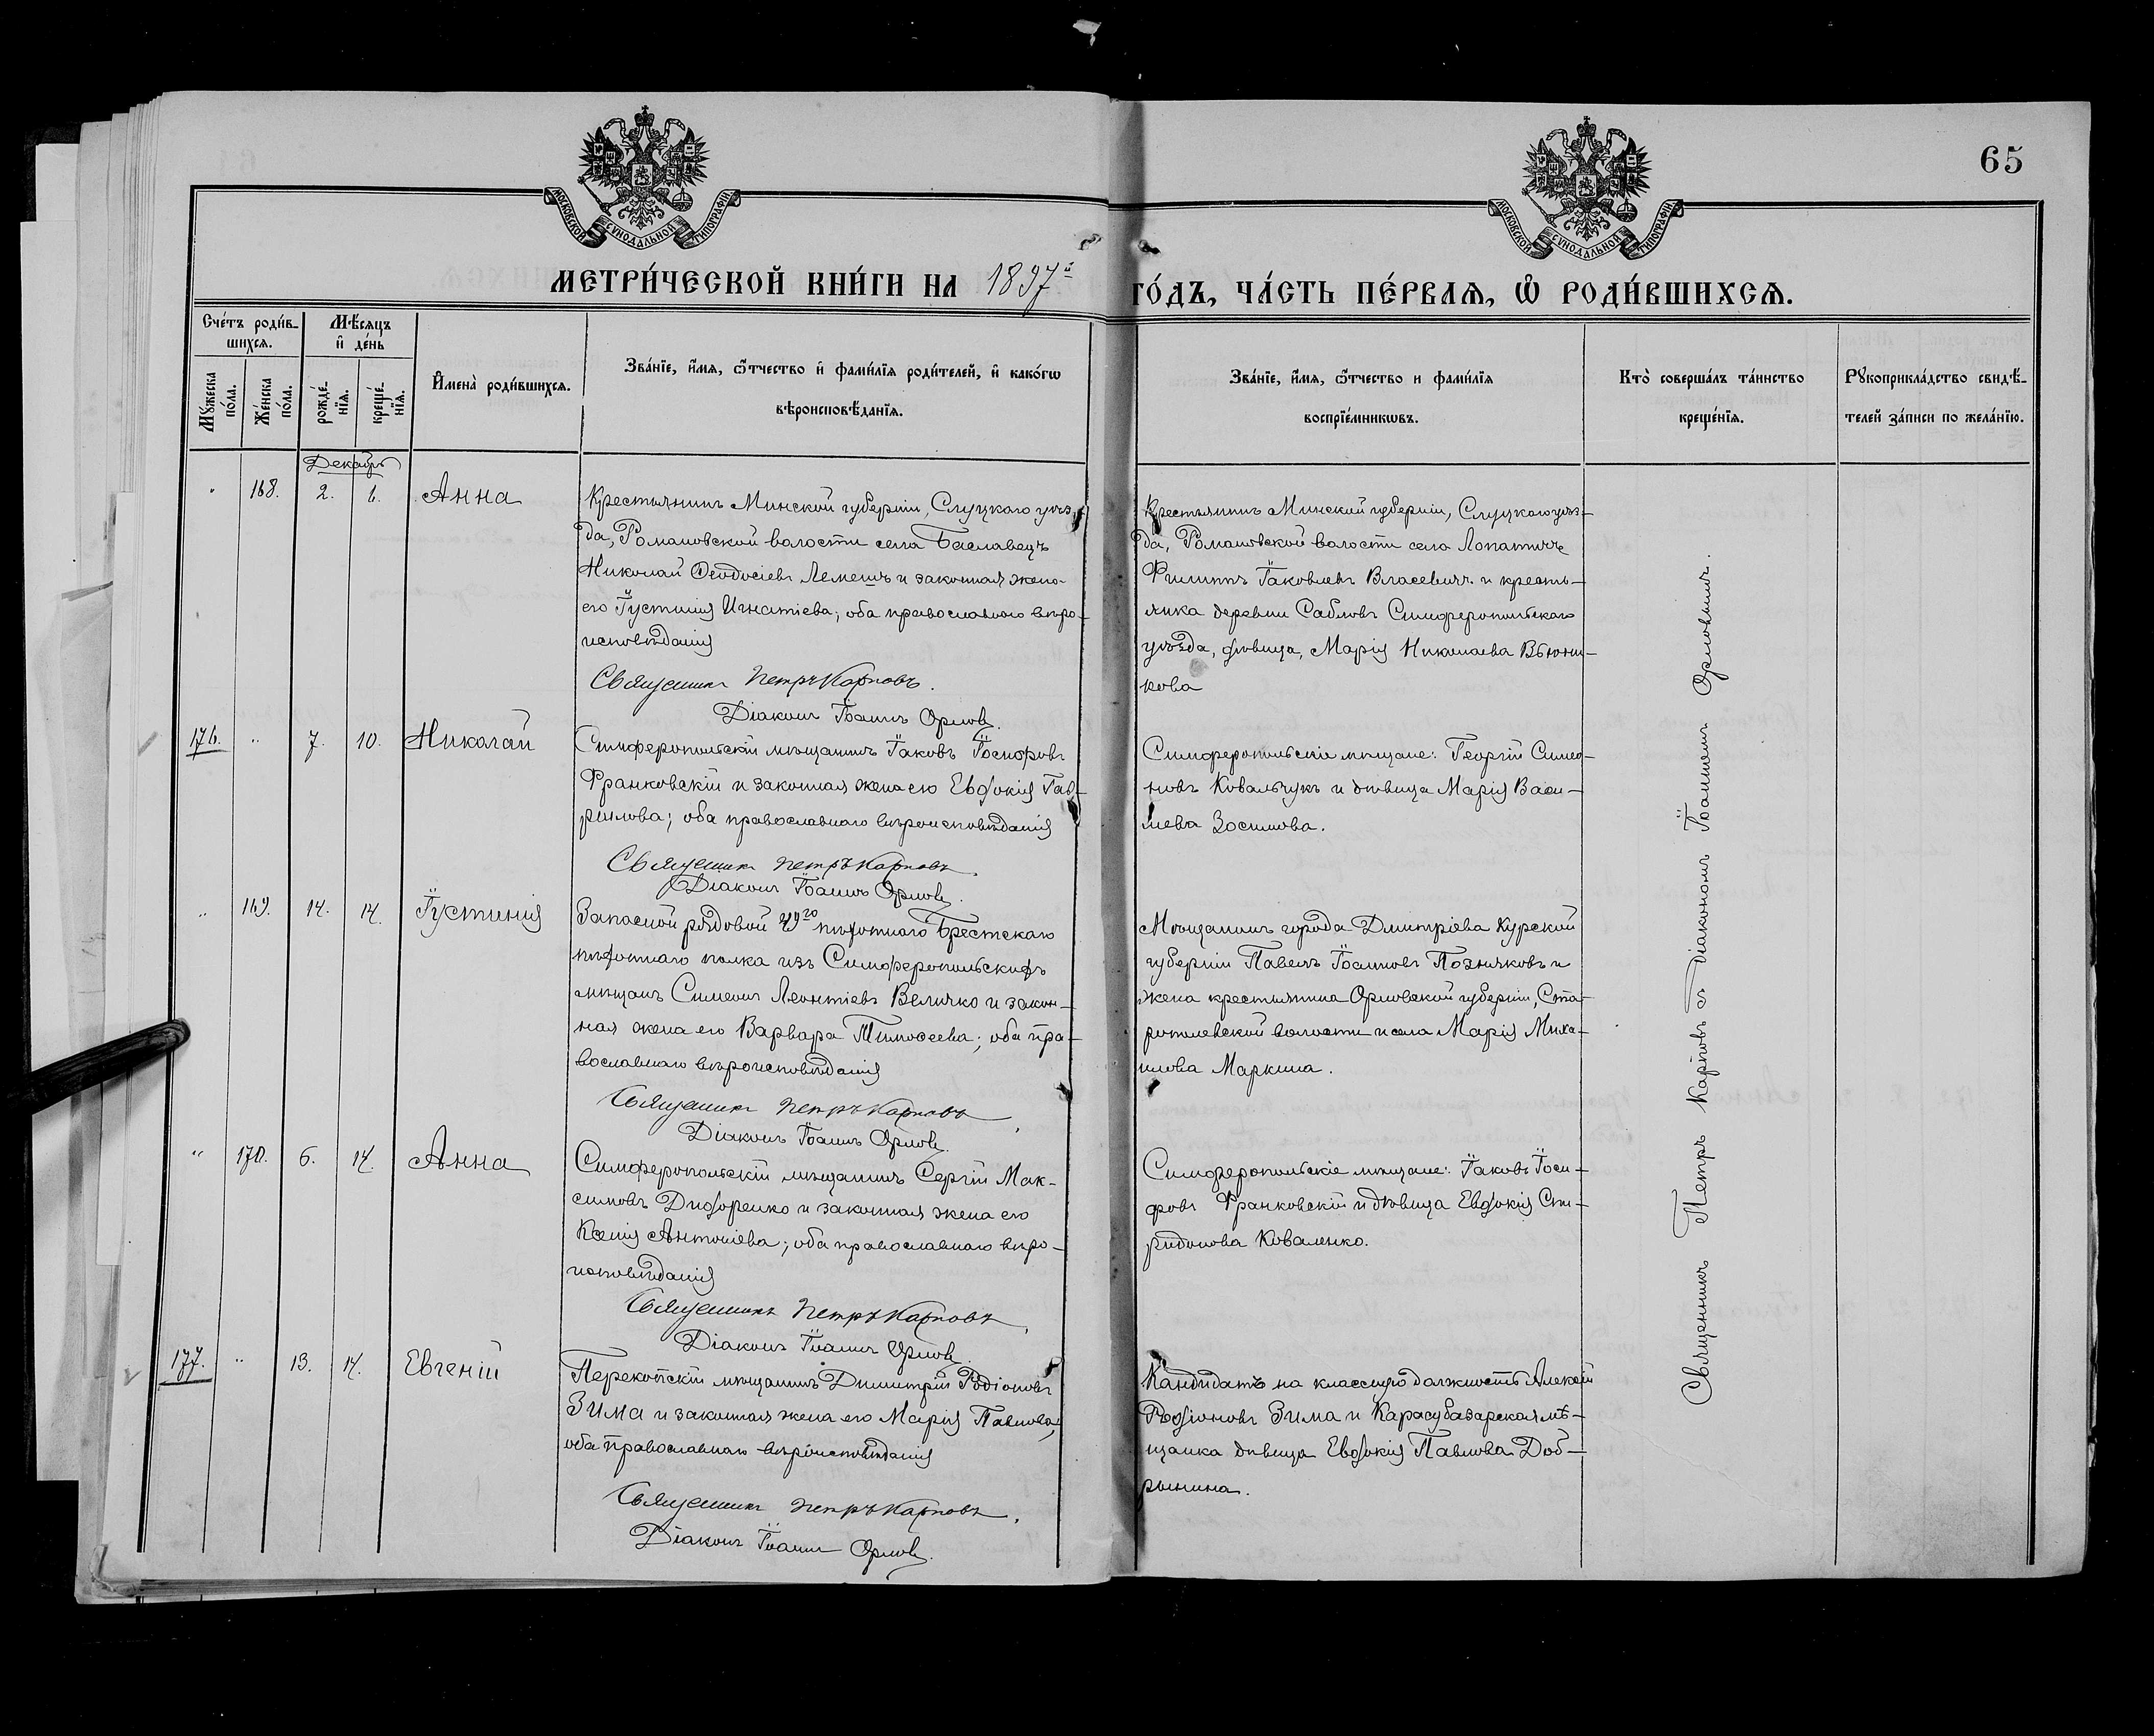 65
МОСКОВСКОЙ СѴНОДАЛЬНОЙ ТИПОГРАФІИ
МОСКОВСКОЙ СѴНОДАЛЬНОЙ ТИПОГРАФІИ
МЕТРИ́ЧЕСКОЙ КНИ́ГИ НА 1897й ГО́ДЪ, ЧА́СТЬ ПЕ́РВАЯ, Ѽ РОДИ́ВШИХСЯ.
Сче́тъ роди́в-
шихся.
Му́жеска
по́ла.
Же́нска
по́ла.
Мѣ́сяцъ
и де́нь
рожде́-
нїя.
креще́-
нїя.
И҆мена̀ роди́вшихся.
Зва́нїе, и҆́мя, ѻ҆́тчество и҆ фами́лїя роди́телей, и҆ како́гѡ
вѣроисповѣ́данїя.
Зва́нїе, и҆́мя, ѻ҆́тчество и фами́лїя
воспрїе́мникѡвъ.
Кто̀ соверша́лъ та́инство
креще́нїя.
Рꙋкоприкла́дство свидѣ́-
телей за́писи по жела́нїю.
Декабрь
" 168. 2. 6. Анна
Крестьянинъ Минской губерніи, Слуцкаго уѣз-
да, Романовской волости села Баславецъ
Николай Ѳеодосіевъ Лемешъ и законная жена
его Іустинія Игнатіева; оба православнаго вѣро-
исповѣданія
Священникъ Петръ Карповъ.
Діаконъ Іоаннъ Орловъ.
Крестьянинъ Минской губерніи, Слуцкаго уѣз-
да, Романовской волости села Лопатичъ
Филиппъ Іаковлевъ Власевичъ и кресть-
янка деревни Сабловъ Симферопольскаго
уѣзда, дѣвица, Марія Николаева Вьюнни-
кова
176. " 7. 10. Николай
Симферопольскій мѣщанинъ Іаковъ Іосифовъ
Франковскій и законная жена его Евдокія Гав-
рилова; оба православнаго вѣроисповѣданія
Священникъ Петръ Карповъ.
Діаконъ Іоаннъ Орловъ.
Симферопольскіе мѣщане: Георгій Симео-
новъ Ковальчукъ и дѣвица Марія Васи-
лиева Зосимова.
" 169. 14. 14. Іустинія
Запасной рядовой 49го пѣхотнаго Брестскаго
пѣхотнаго полка изъ Симферопольскихъ
мѣщанъ Симеонъ Леонтіевъ Величко и закон-
ная жена его Варвара Тимоѳеева; оба пра-
вославнаго вѣроисповѣданія
Священникъ Петръ Карповъ.
Діаконъ Іоаннъ Орловъ.
Мѣщанинъ города Дмитріева Курской
губерніи Павелъ Іоанновъ Позняковъ и
жена крестьянина Орловской губерніи,
волости и села Марія Миха-
илова Маркина.
" 170. 6. 14. Анна
Симферопольскій мѣщанинъ Сергій Мак-
симовъ Дидоренко и законная жена его
Ксенія Антоніева; оба православнаго вѣро-
исповѣданія
Священникъ Петръ Карповъ.
Діаконъ Іоаннъ Орловъ.
Симферопольскіе мѣщане: Іаковъ Іоси-
фовъ Франковскій и дѣвица Евдокія Спи-
ридонова Коваленко.
177. " 13. 14. Евгеній
Перекопскій мѣщанинъ Димитрій Родіоновъ
Зима и законная жена его Марія Павлова;
оба православнаго вѣроисповѣданія
Священникъ Петръ Карповъ.
Діаконъ Іоаннъ Орловъ.
Кандидатъ на классную должность Алексѣй
Родіоновъ Зима и Карасубазарская мѣ-
щанка дѣвица Евдокія Павлова Доб-
рынина.
Священникъ Петръ Карповъ съ діакономъ Іоанномъ Орловымъ.